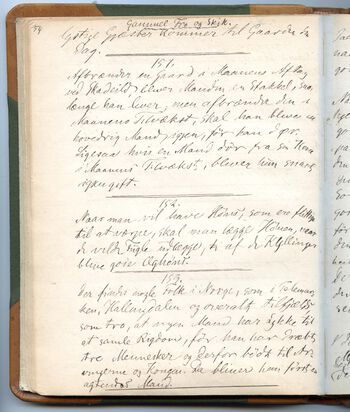 Gammel Tro og Skik.
Gæster kommer til Gaarden
Dag.
151.
Afbrænder en Gaard i Maanens Aftag
ved Skadeild bliver Manden en Stakkel, saa
længe han lever, men afbrænder den i
Maanens Tilvækst, skal han blive en
hovedrig Mand igjen, før han dør.
Ligesaa hvis en Mand dør fra en Kone
i Maanens Tilvækst, bliver hun snart
igjen gift.
152.
Naar man vil have Høns, som ere flittige
til at værpe, skal man lægge Hønen, naar
de vilde Fugle udlægge, de af de Kyllinger
blive gode Æghøns.
153.
Der findes nogle Folk i Norge, som i Telemar-
ken, Hallingdalen og overalt til Fjelds
som tro, at ingen Mand har Lykke til
at samle Rigdom, før han har dræbt
tre Mennesker og derfor bødt til Ar-
vingerne og Kongen. Da bliver han først en
agtendes Mand.